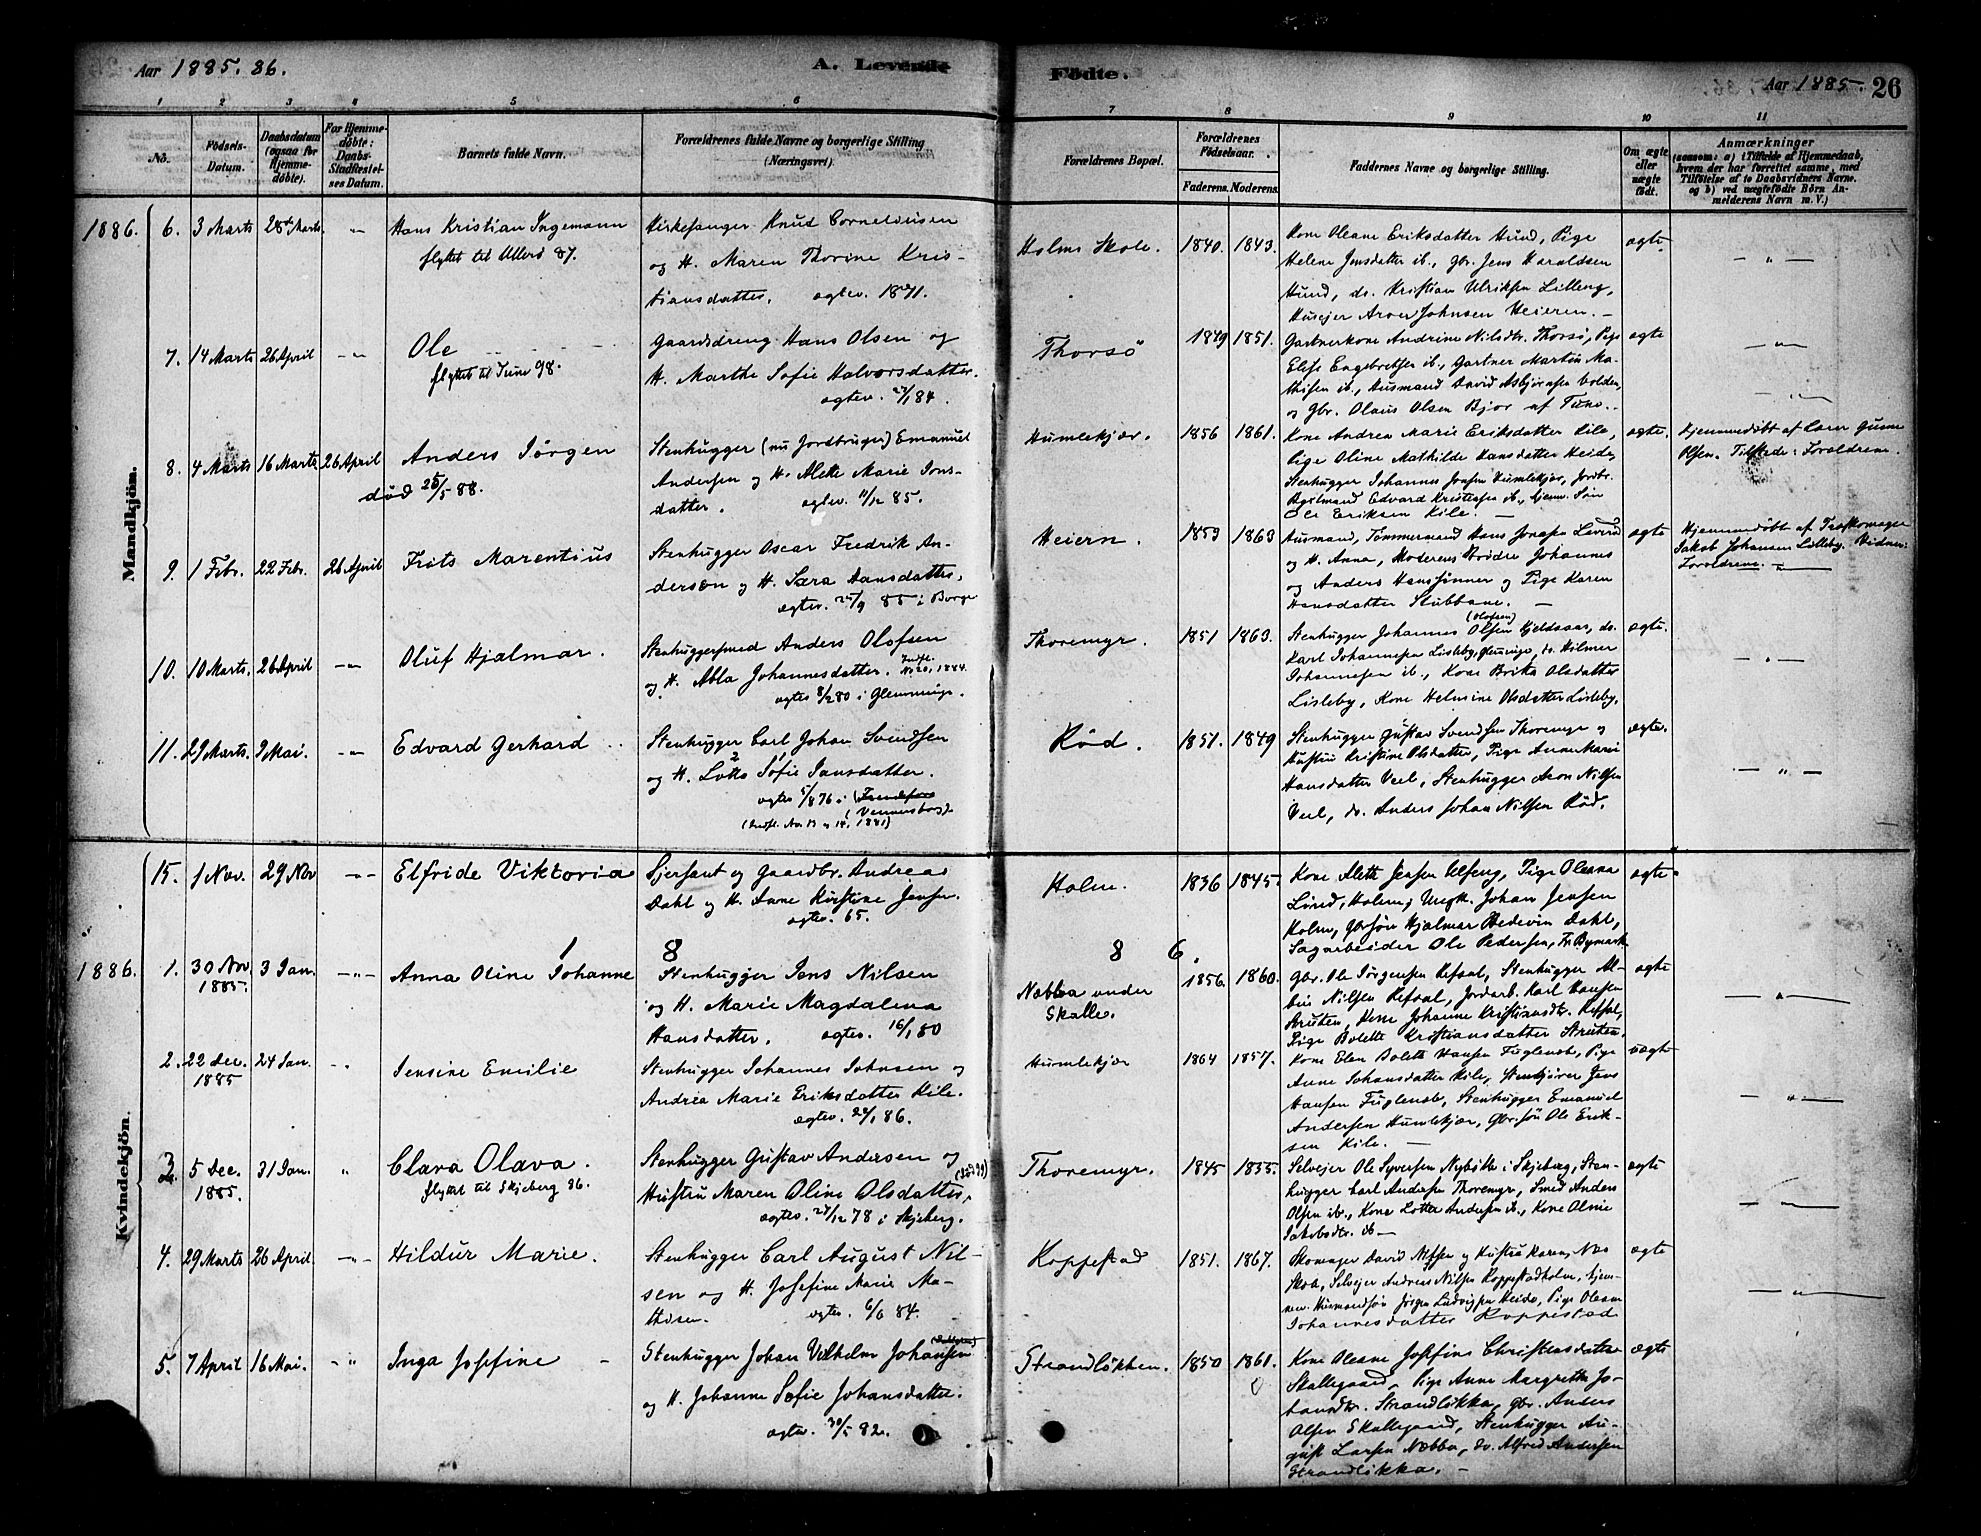 Aar 1885. 86.
A. Levende Födte.
Aar 1885. 26
1 2 3 4 5 6 7 8 9 10 11
No.
Födsels-Datum.
Daabsdatum (ogsaa for Hjemme-döbte).
For Hjemme-döbte: Daabs-Stadfæstel-ses Datum.
Barnets fulde Navn.
Forældrenes fulde Navne og borgerlige Stilling (Næringsvei).
Forældrenes Bopæl.
Forældrenes Födselsaar.
Faderens. Moderens.
Faddernes Navne og borgerlige Stilling.
Om ægte eller uægte födt.
Anmærkninger
(saasom: a) i Tilfælde af Hjemmedaab,
hvem der har forrettet samme, med
Tilföielse af to Daabsvidners Navne,
og b) ved uægtefödte Börn An-
melderens Navn m. V.)
Mandkjön.
1886. 6. 3 Marts 28de Marts. -"- Hans Kristian Ingemann
flyttet til Ullerö 87.
Kirkesanger Knud Corneliussen
og H. Maren Thorine Kris-
tiansdatter. ægtev. 1871.
Holms Skole. 1840. 1843.
Kone Oleane Eriksdatter Hund, Pige
Helene Jensdatter ib., Gbr. Jens Haraldsen
Hund, do. Kristian Ulriksen Lilleng,
Husejer Aron Johnsen Heieren. -
ægte - " -
7. 14 Marts 26 April -"- Ole
flyttet til Tune 98.
Gaardsdreng Hans Olsen og
H. Marthe Sofie Halvorsdatter.
ægtev. 27/1 84.
Thorsö 1849 1851.
Gartnerkone Andrine Nilsdtr. Thorsö, Pige
Elise Engebretsen ib., Gartner Martin Ma-
thisen ib., Husmand David Asbjørnsen Volden,
og Gbr. Olaus Olsen Bjor af Tune.
ægte - " -
8. 4 Marts 16 Marts 26 April Anders Jørgen
död 25/5 88.
Stenhugger (nu Jordbruger) Emanuel
Andersen og H. Alette Marie Jons-
datter. ægtev. 11/12 85.
Humlekjær. 1856 1861.
Kone Andrea Marie Eriksdatter Kile,
Pige Oline Mathilde Hansdatter Heide,
Stenhugger Johannes Jonsen Humlekjær, Jordbr.
Bgslmand Edvard Kristiansen ib., hjemv. Søn
Ole Eriksen Kile. -
ægte.
Hjemmedøbt af Lars Gunne
Olsen. Tilstede: Forældrene.
9. 1 Febr. 22 Febr. 26 April Frits Marentius
Stenhugger Oscar Fredrik An-
dersön og H. Sara Hansdatter.
ægtev. 27/9 85 i Borge
Heiern. 1859 1863
Husmand, Tømmermand Hans Jonsen
og H. Anna, Moderens Brödre Johannes
og Anders Hanssönner og Pige Karen
Hansdatter Stubbane. -
ægte
Hjemmedøbt af Træskomager
Jakob Johansen Lilleby. Vidner:
Forældrene. -"-
10. 10 Marts. 26 April -"- Oluf Hjalmar.
Stenhuggersmed Anders Olofsen
og H. Abla Johannesdatter. Indfl. No. 20, 1884.
ægtev 8/2 80 i Glemminge.
Thoremyr. 1851 1863.
Stenhugger Johannes Olsen (Olofsen) Kjeldsaas, do.
Karl Johannesen Lisleby, Glemminge, do. Hilmer
Johannesen ib., Kone Brita Olsdatter
Lisleby, Kone Helmine Olsdatter Lisleby.
ægte. - " -
11. 29 Marts. 9 Mai. -"- Edvard Gerhard
Stenhugger Carl Johan Svendsen
og H. Lotta Sofie Jansdatter.
ægtev 5/8 76 i (Vennersborg).
(Indfl. Aar B No 14, 1881)
Röd. 1851. 1849
Stenhugger Gustav Svendsen Thoremyr og
Hustru Kristine Olsdatter, Pige Anne Marie
Hansdatter Veel, Stenhugger Aron Nilsen
Veel, do. Anders Johan Nilsen Röd.
ægte. - " -
Kvindekjön.
15. 1 Nov. 29 Nov -"- Elfride Viktoria
Sjersant og Gaardbr. Andreas
Dahl og H. Anne Kirstine Jensen.
ægtev. 65.
Holm. 1836 1845.
Kone Aleth Jensen Ulfeng, Pige Oleana
Lund, Holm, Ungk. Johan Jensen
Holm, Gbrsön Hjalmar Hedevin Dahl,
Sagarbeider Ole Pedersen, Fr. Bymark
ægte
1 8 8 6.
1886. 1. 30 Nov 1885. 3 Jan. -"- Anna Oline Johanne
Stenhugger Jens Nilsen
og H. Marie Magdalena
Hansdatter. ægtev. 16/1 80
Nabba under Skalle. 1856. 1860.
Gbr. Ole Jørgensen Refsal, Stenhugger Al-
bin Nilsen Refsal, Jordarb. Karl Hansen
Struten, Kone Johanne Kristiansdtr. Refsal,
Pige Bolette Kristiansdatter Struten.
ægte - " -
2. 22 Dec. 1885 24 Jan. -"- Jensine Emilie
Stenhugger Johannes Johnsen og
Andrea Marie Eriksdatter Kile.
ægtev. 24/1 86.
Humlekjær 1864 1857.
Kone Elen Bolette Hansen Fuglenab, Pige
Anne Johansdatter Kile, Stenkjører Jens
Hansen Fuglenab, Stenhugger Emanuel
Andersen Humlekjær, Gbrsön Ole Erik-
sen Kile. -
uægte - " -
3. 5 Dec. 1885. 31 Jan. " Clara Olava.
flyttet til Skjeberg 86.
Stenhugger Gustav Andersen og
Hustru Maren Oline Olsdatter.
ægtev. 27/12 78 i Skjeberg.
Thoremyr. 1845 1855.
Selvejer Ole Syversen Nybøtte i Skjeberg, Sten-
hugger Carl Andersen Thoremyr, Smed Anders
Olsen ib., Kone Lotta Andersen ib., Kone Olmie
Jakobsdtr. ib -
ægte - " -
4. 29 Marts 26 April. -"- Hildur Marie.
Stenhugger Carl August Nil-
sen og H. Josefine Marie Ma-
thisen. ægtev. 6/6 84.
Koppestad 1851. 1867.
Skomager David Nilsen og Hustru Karen, Næs
Skob., Selvejer Andreas Nilsen Koppestadholm, hjem-
mev. Husmandssön Jørgen Ludvigsen Heide, Pige Oleane
Johannesdatter Koppestad
ægte - " -
5. 7 April 16 Mai. -"- Inga Josefine
Stenhugger Johan Vilhelm Johansen
og H. Johanne Sofie Johansdatter.
ægtev. 30/5 82.
Strandløkken. 1850 1861.
Kone Oleane Josefine Christensdatter
Skallegaard, Pige Anne Margrethe Jo-
hansdtr. Strandløkka, Gbr. Anders
Olsen Skallegaard, Stenhugger Au-
gust Larsen Nabba, do. Alfred Andersen
Strandløkka. -
ægte